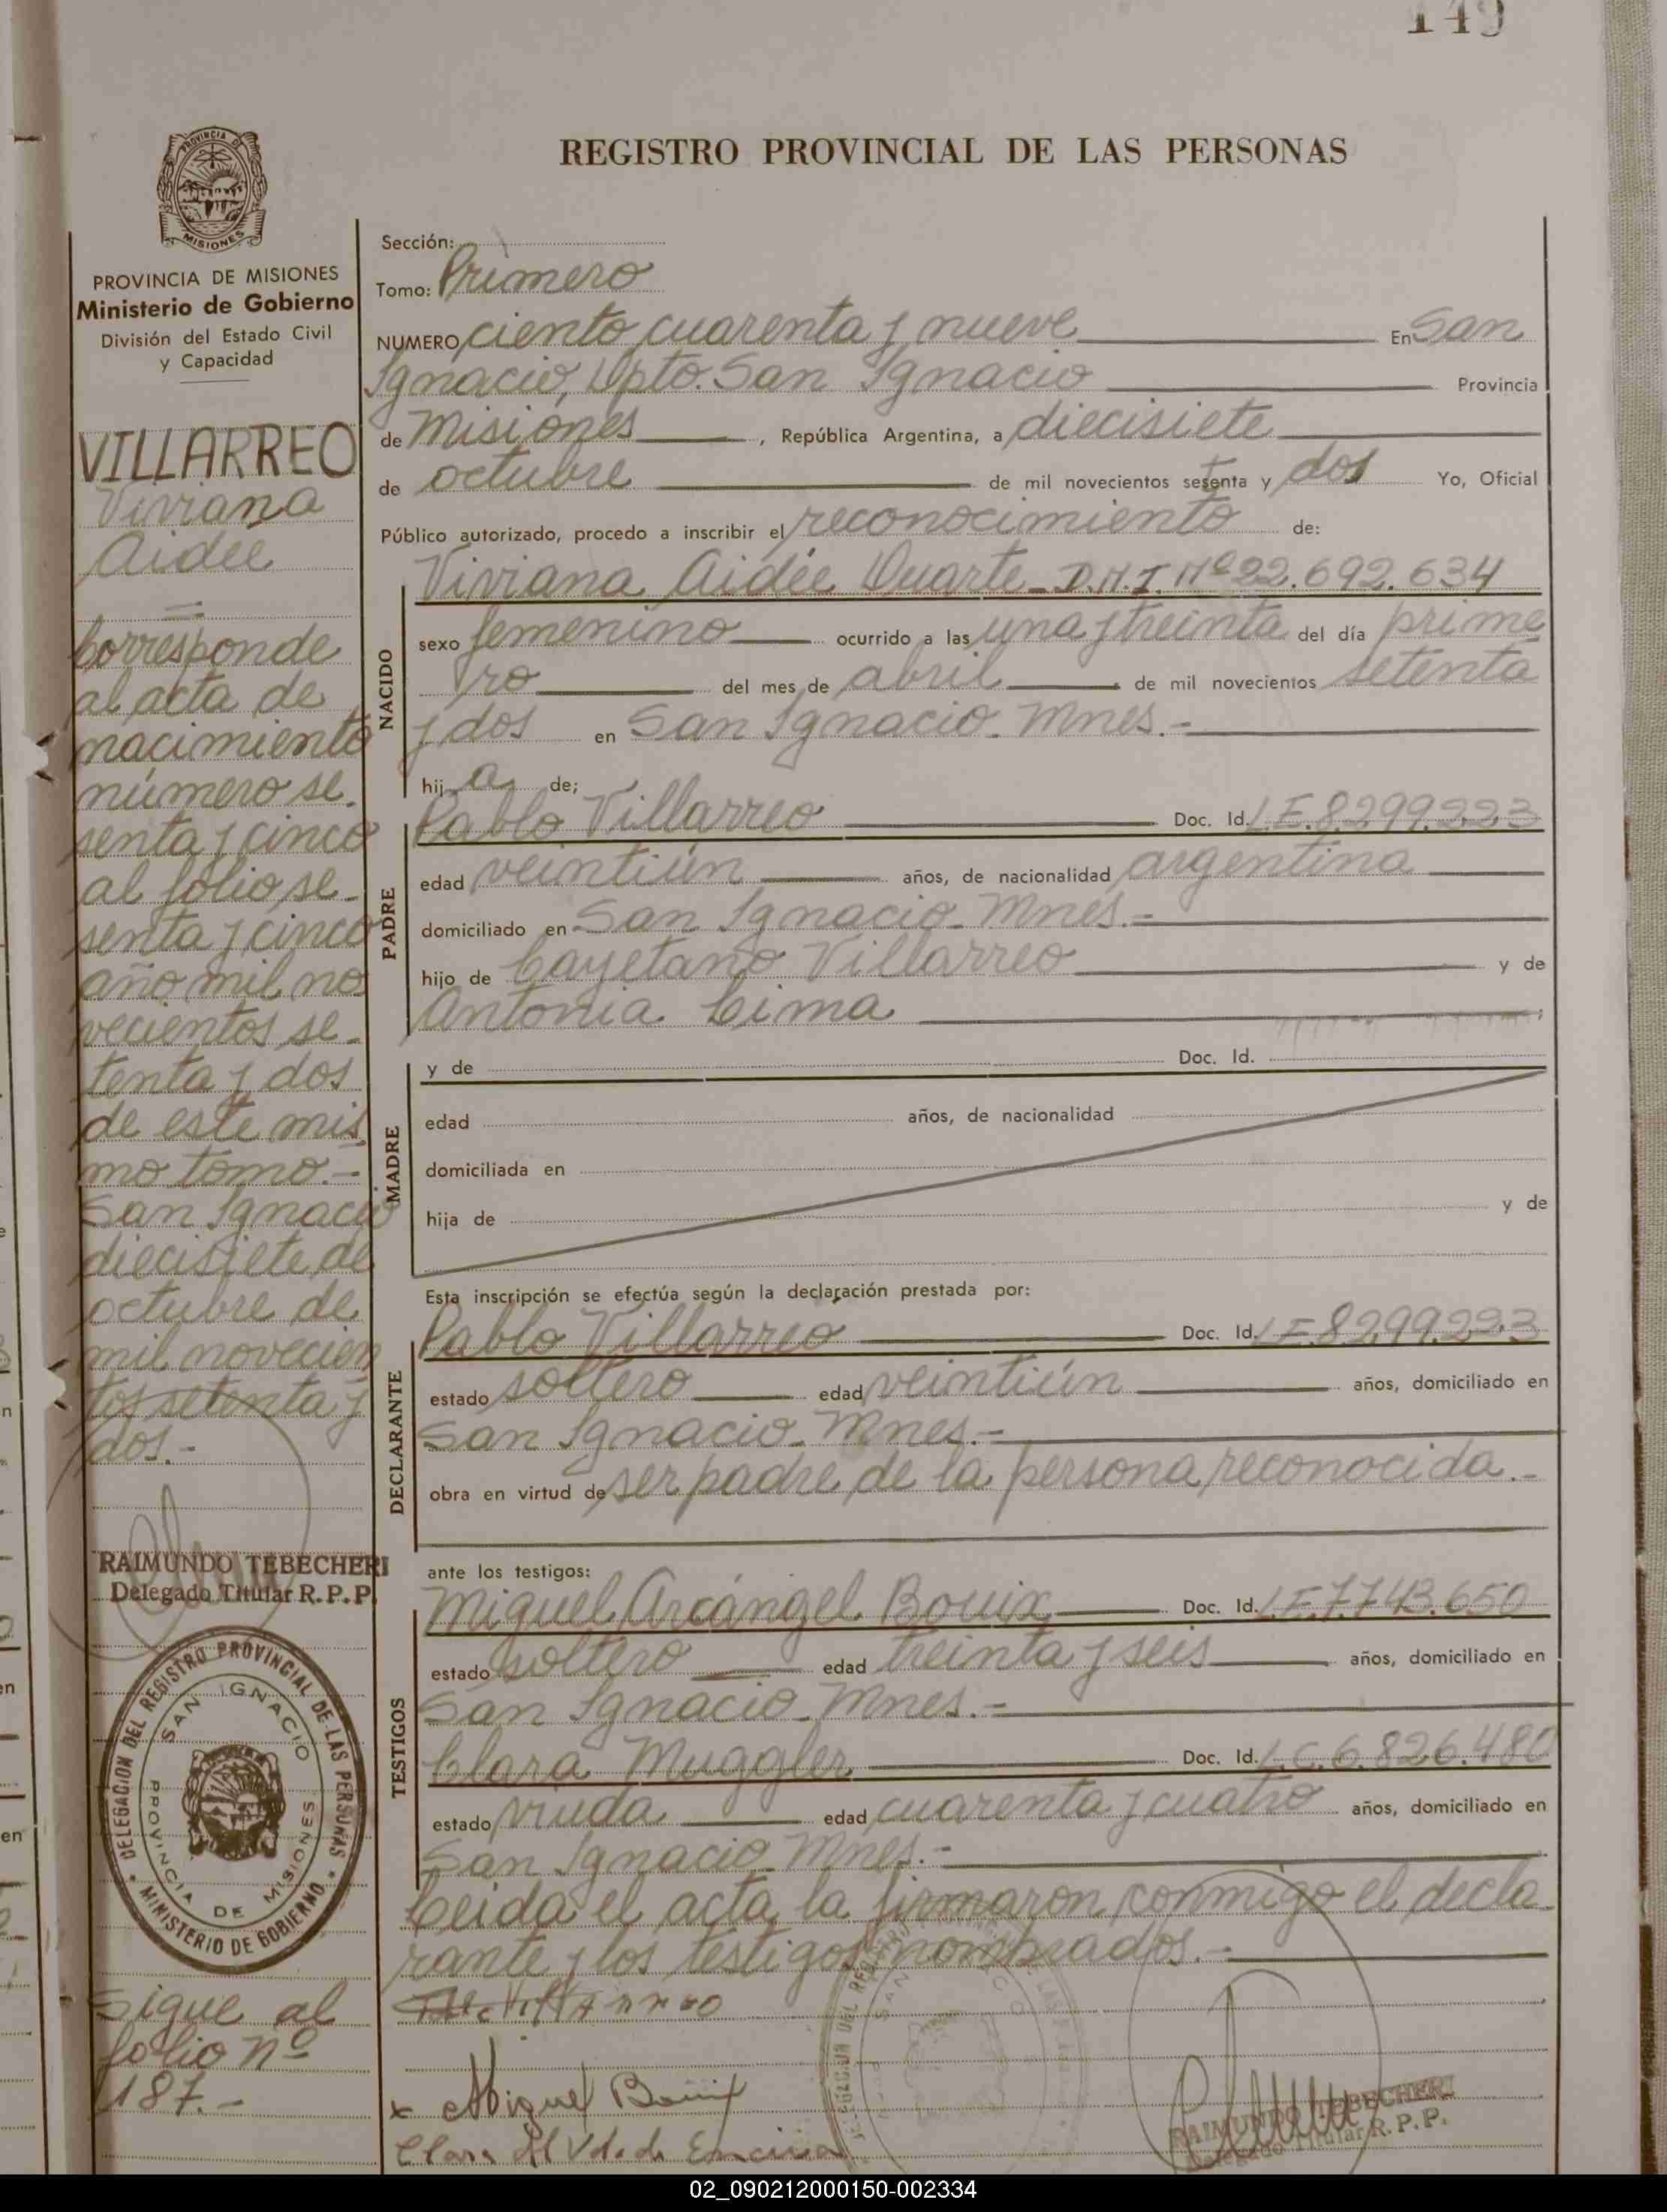 149
REGISTRO PROVINCIAL DE LAS PERSONAS
PROVINCIA DE MISIONES
Ministerio de Gobierno
División del Estado Civil
y Capacidad
VILLARREO
Viviana
Aidée
Corresponde
al acta de
nacimiento
número se-
senta y cinco
al folio se-
senta y cinco
año mil no
vecientos se-
tenta y dos
de este mis
mo tomo.-
San Ignacio
diecisiete de
octubre de
mil novecien
tos setenta y
dos.-
RAIMUNDO TEBECHERI
Delegado Titular R.P.P.
DELEGACION DEL REGISTRO PROVINCIAL DE LAS PERSONAS
SAN IGNACIO
PROVINCIA DE MISIONES
MINISTERIO DE GOBIERNO
Sigue al
folio nº
187.-
Sección:
Tomo: Primero
NUMERO ciento cuarenta y nueve En San
Ignacio, Dpto. San Ignacio Provincia
de Misiones, República Argentina, a diecisiete
de octubre de mil novecientos setenta y dos Yo, Oficial
Público autorizado, procedo a inscribir el reconocimiento de:
Viviana Aidée Duarte - D.N.I. Nº 22.692.634
NACIDO
sexo femenino ocurrido a las una y treinta del día prime
ro del mes de abril de mil novecientos setenta
y dos en San Ignacio - Mnes.-
hija de;
PADRE
Pablo Villarreo Doc. Id. L.E. 8.299.223
edad veintiún años, de nacionalidad argentina
domiciliado en San Ignacio - Mnes.-
hijo de Cayetano Villarreo y de
Antonia Cima ;
MADRE
y de Doc. Id.
edad años, de nacionalidad
domiciliada en
hija de y de
Esta inscripción se efectúa según la declaración prestada por:
DECLARANTE
Pablo Villarreo Doc. Id. L.E. 8.299.223
estado soltero edad veintiún años, domiciliado en
San Ignacio - Mnes.-
obra en virtud de ser padre de la persona reconocida.-
ante los testigos:
TESTIGOS
Miguel Arcángel Bouix Doc. Id. L.E. 7.743.650
estado soltero edad treinta y seis años, domiciliado en
San Ignacio - Mnes.-
Clara Muggler Doc. Id. L.C. 6.826.480
estado viuda edad cuarenta y cuatro años, domiciliado en
San Ignacio - Mnes.-
Leida el acta, la firmaron conmigo el decla
rante y los testigos nombrados.-
x Miguel Bouix
Clara M Vda. de Encina
RAIMUNDO TEBECHERI
Delegado Titular R.P.P.
02_090212000150-002334